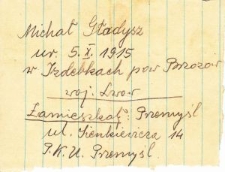 Michał Gładysz
ur. 5.X.1915
w Izdebkach pow Brzozów
woj. Lwów
Zamieszkał: Przemyśl
ul. Sienkiewicza 14
P.K.U. Przemyśl.